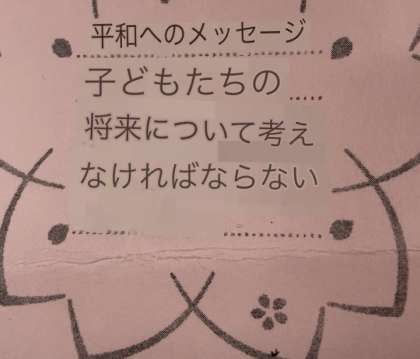 平和へのメッセージ
子どもたちの
将来について考え
なければならない